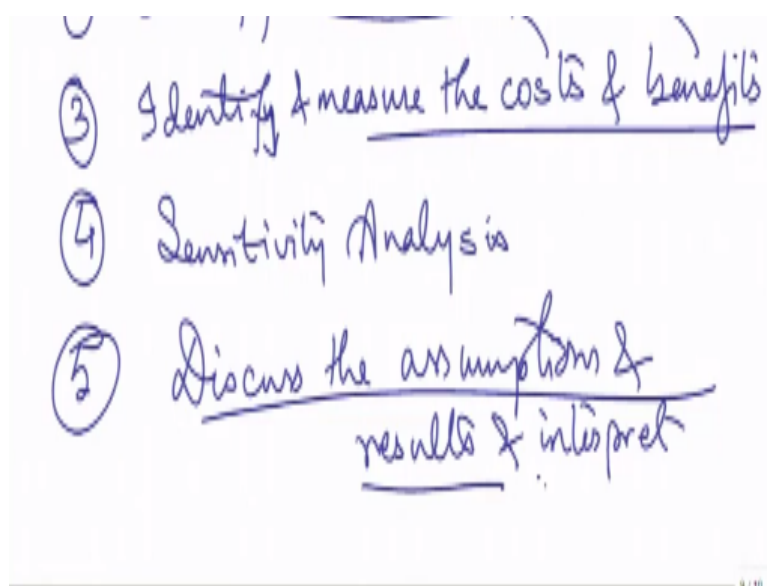 ③ Identify & measure the costs & benefits
④ Sensitivity Analysis
⑤ Discuss the assumptions &
results & interpret